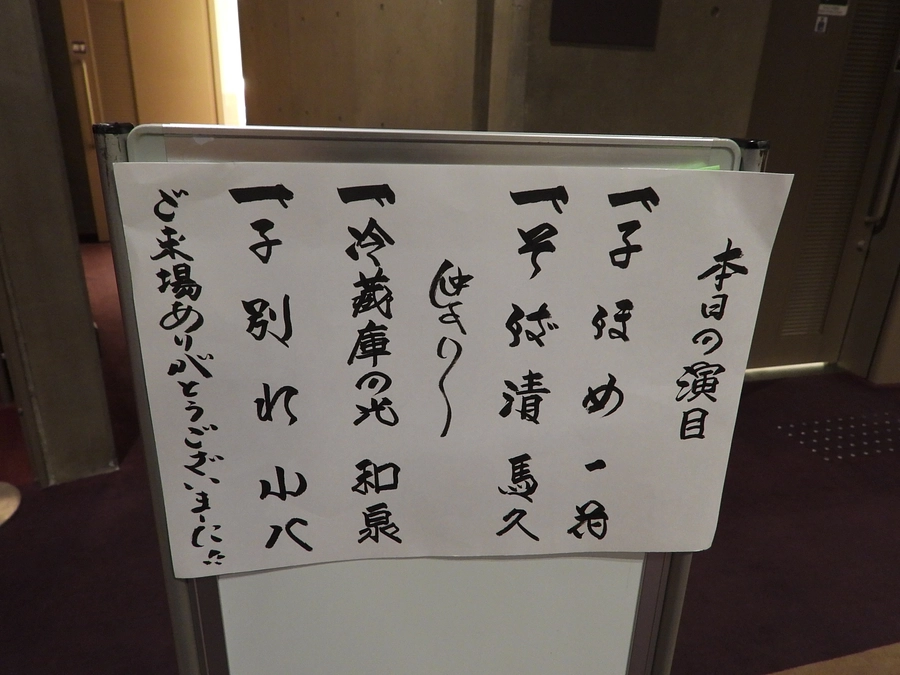 本日の演目
一、子ほめ 一荷
一、そば清 馬久
仲入り
一、冷蔵庫の光 和泉
一、子別れ 小八
ご来場ありがとうございました